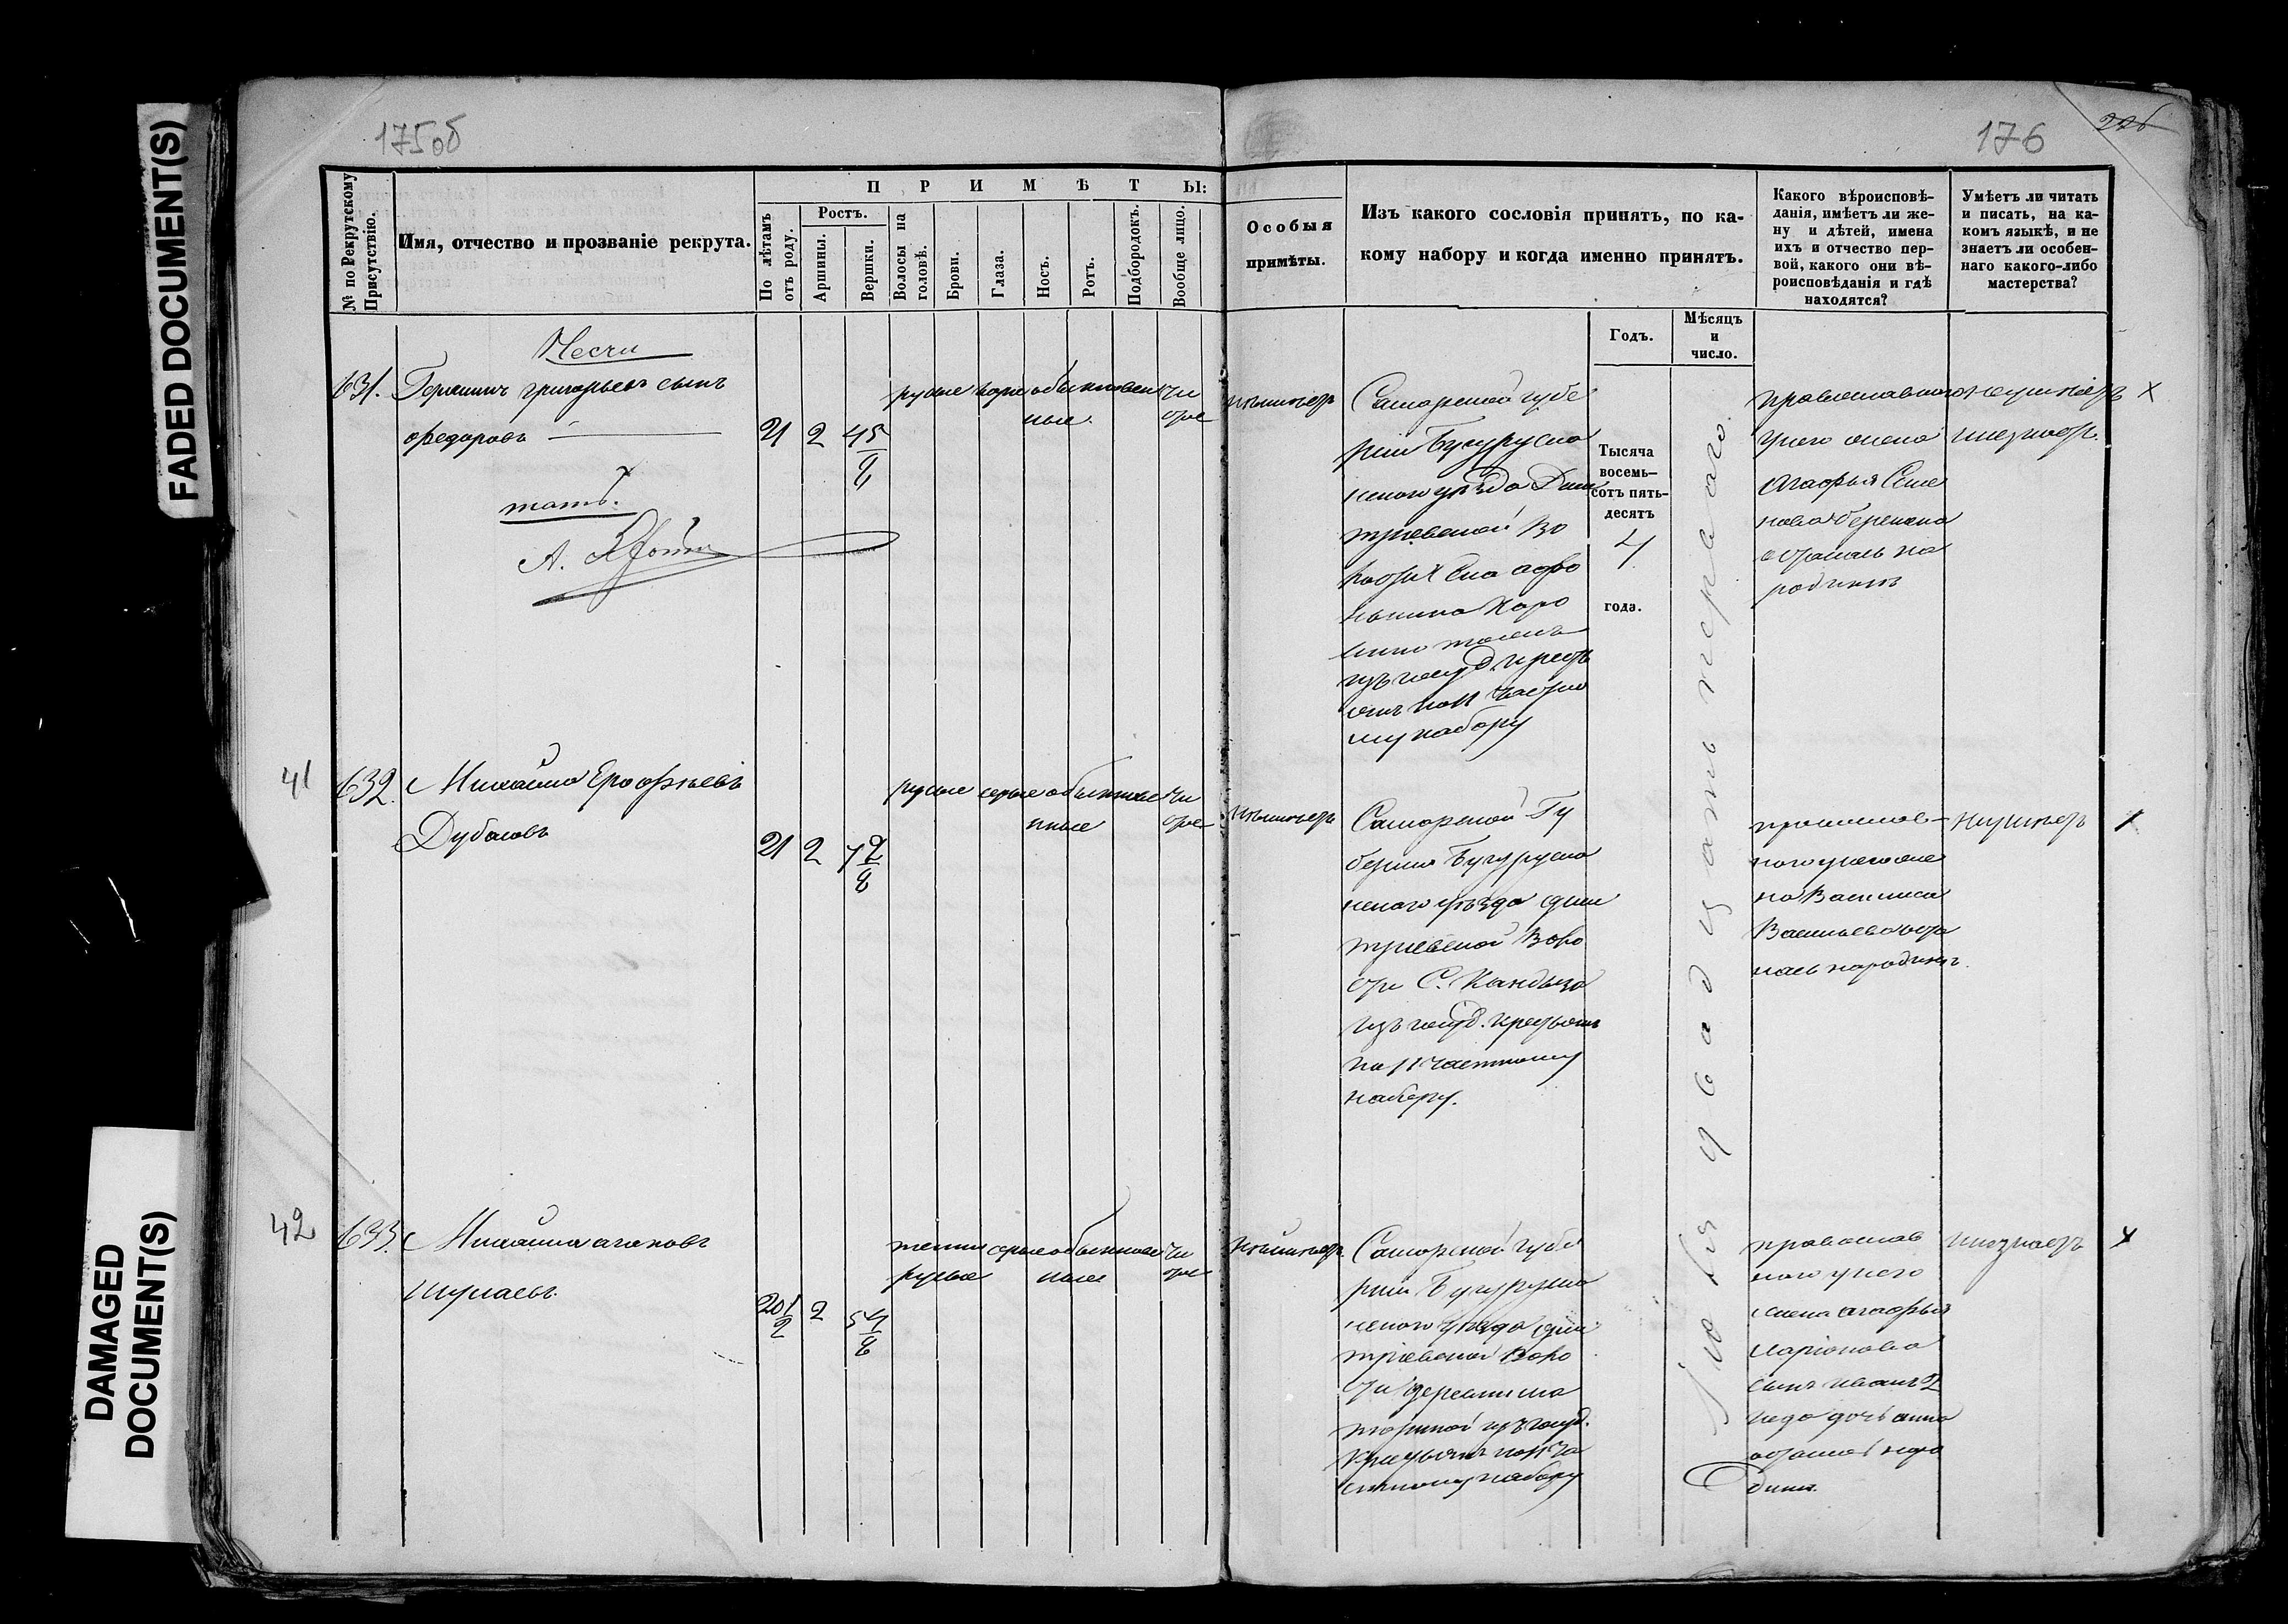 FADED DOCUMENT(S)
DAMAGED
DOCUMENT(S)
175об
176
226
№ по Рекрутскому
Присутствію.
Имя, отчество и прозваніе рекрута.
П Р И М Ѣ Т Ы:
По лѣтамъ
отъ роду.
Ростъ.
Аршины.
Вершки.
Волосы на
головѣ.
Брови.
Глаза.
Носъ.
Ротъ.
Подбородокъ.
Вообще лицо.
Особыя
примѣты.
Изъ какого сословія принятъ, по ка-
кому набору и когда именно принятъ.
Годъ.
Мѣсяцъ
и
число.
Какого вѣроисповѣ-
данія, имѣетъ ли же-
ну и дѣтей, имена
ихъ и отчество пер-
вой, какого они вѣ-
роисповѣданія и гдѣ
находятся?
Умѣетъ ли читать
и писать, на ка-
комъ языкѣ, и не
знаетъ ли особен-
наго какого-либо
мастерства?
631.
григорьевъ сынъ
федоровъ
21 2 4 5/8
русые обыкновен
ные
чи
стое
неимѣетъ
Самарской губе
рніи Бугурусла
нскаго уѣзда Дми
тріевской Во
изъ госуд. крест
му набору
Тысяча
восемь-
сотъ пять-
десятъ
4
года.
Генваря двадцать перваго.
православнаго
у него жена
Агафья Семе
нова беремена
осталась на
родинѣ
неумѣетъ
и незнаетъ
х
41
632.
Михайло Ерофѣевъ
Дубасовъ
21 2 7 2/8
русые серые обыкнове
нные
чи
стое
неимѣетъ
Самарской Гу
берніи Бугурусла
нскаго уѣзда Дми
тріевской Воло
сти С. Кандыза
изъ госуд. крестьянъ
по 11 частному
набору.
православ-
наго у него же
на Василиса
Васильева оста
лась народинѣ.
неумѣетъ
х
42
633.
Михайла агаповъ
20 1/2 2 5 4/8
темно
русые
серые обыкновен
ные
чи
стое
неимѣетъ
Самарской губе
рніи Бугурусла
нскаго уѣзда Дми
тріевской Воло
сти деревни
изъ госуд.
крестьянъ по 11 ча
стному набору
православ
наго у него
жена агафья
ларіонова
сынъ иванъ 2
года дочь анна
остались наро
динѣ.
незнаетъ
х